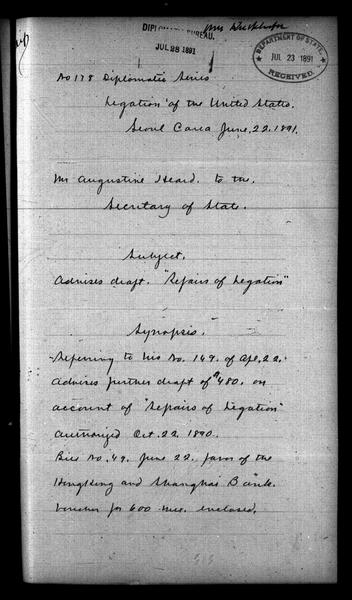 DIPLOMATIC BUREAU.
JUL 28 1891
DEPARTMENT OF STATE,
JUL 23 1891
RECEIVED.
No 178 Diplomatic Series
Legation of the United States.
Seoul Corea June, 22, 1891.
Mr Augustine Heard. to the.
Secretary of State.
Subject.
Advises draft. "Repairs of Legation"
Synopsis.
Referring to his No. 149. of Apl. 22.
Advises further draft of $480. on
account of "Repairs of Legation"
authorized Oct. 22. 1890.
Bill No. 49. June 22. favor of the
HongKong and Shanghai Bank.
Voucher for 600 enclosed.